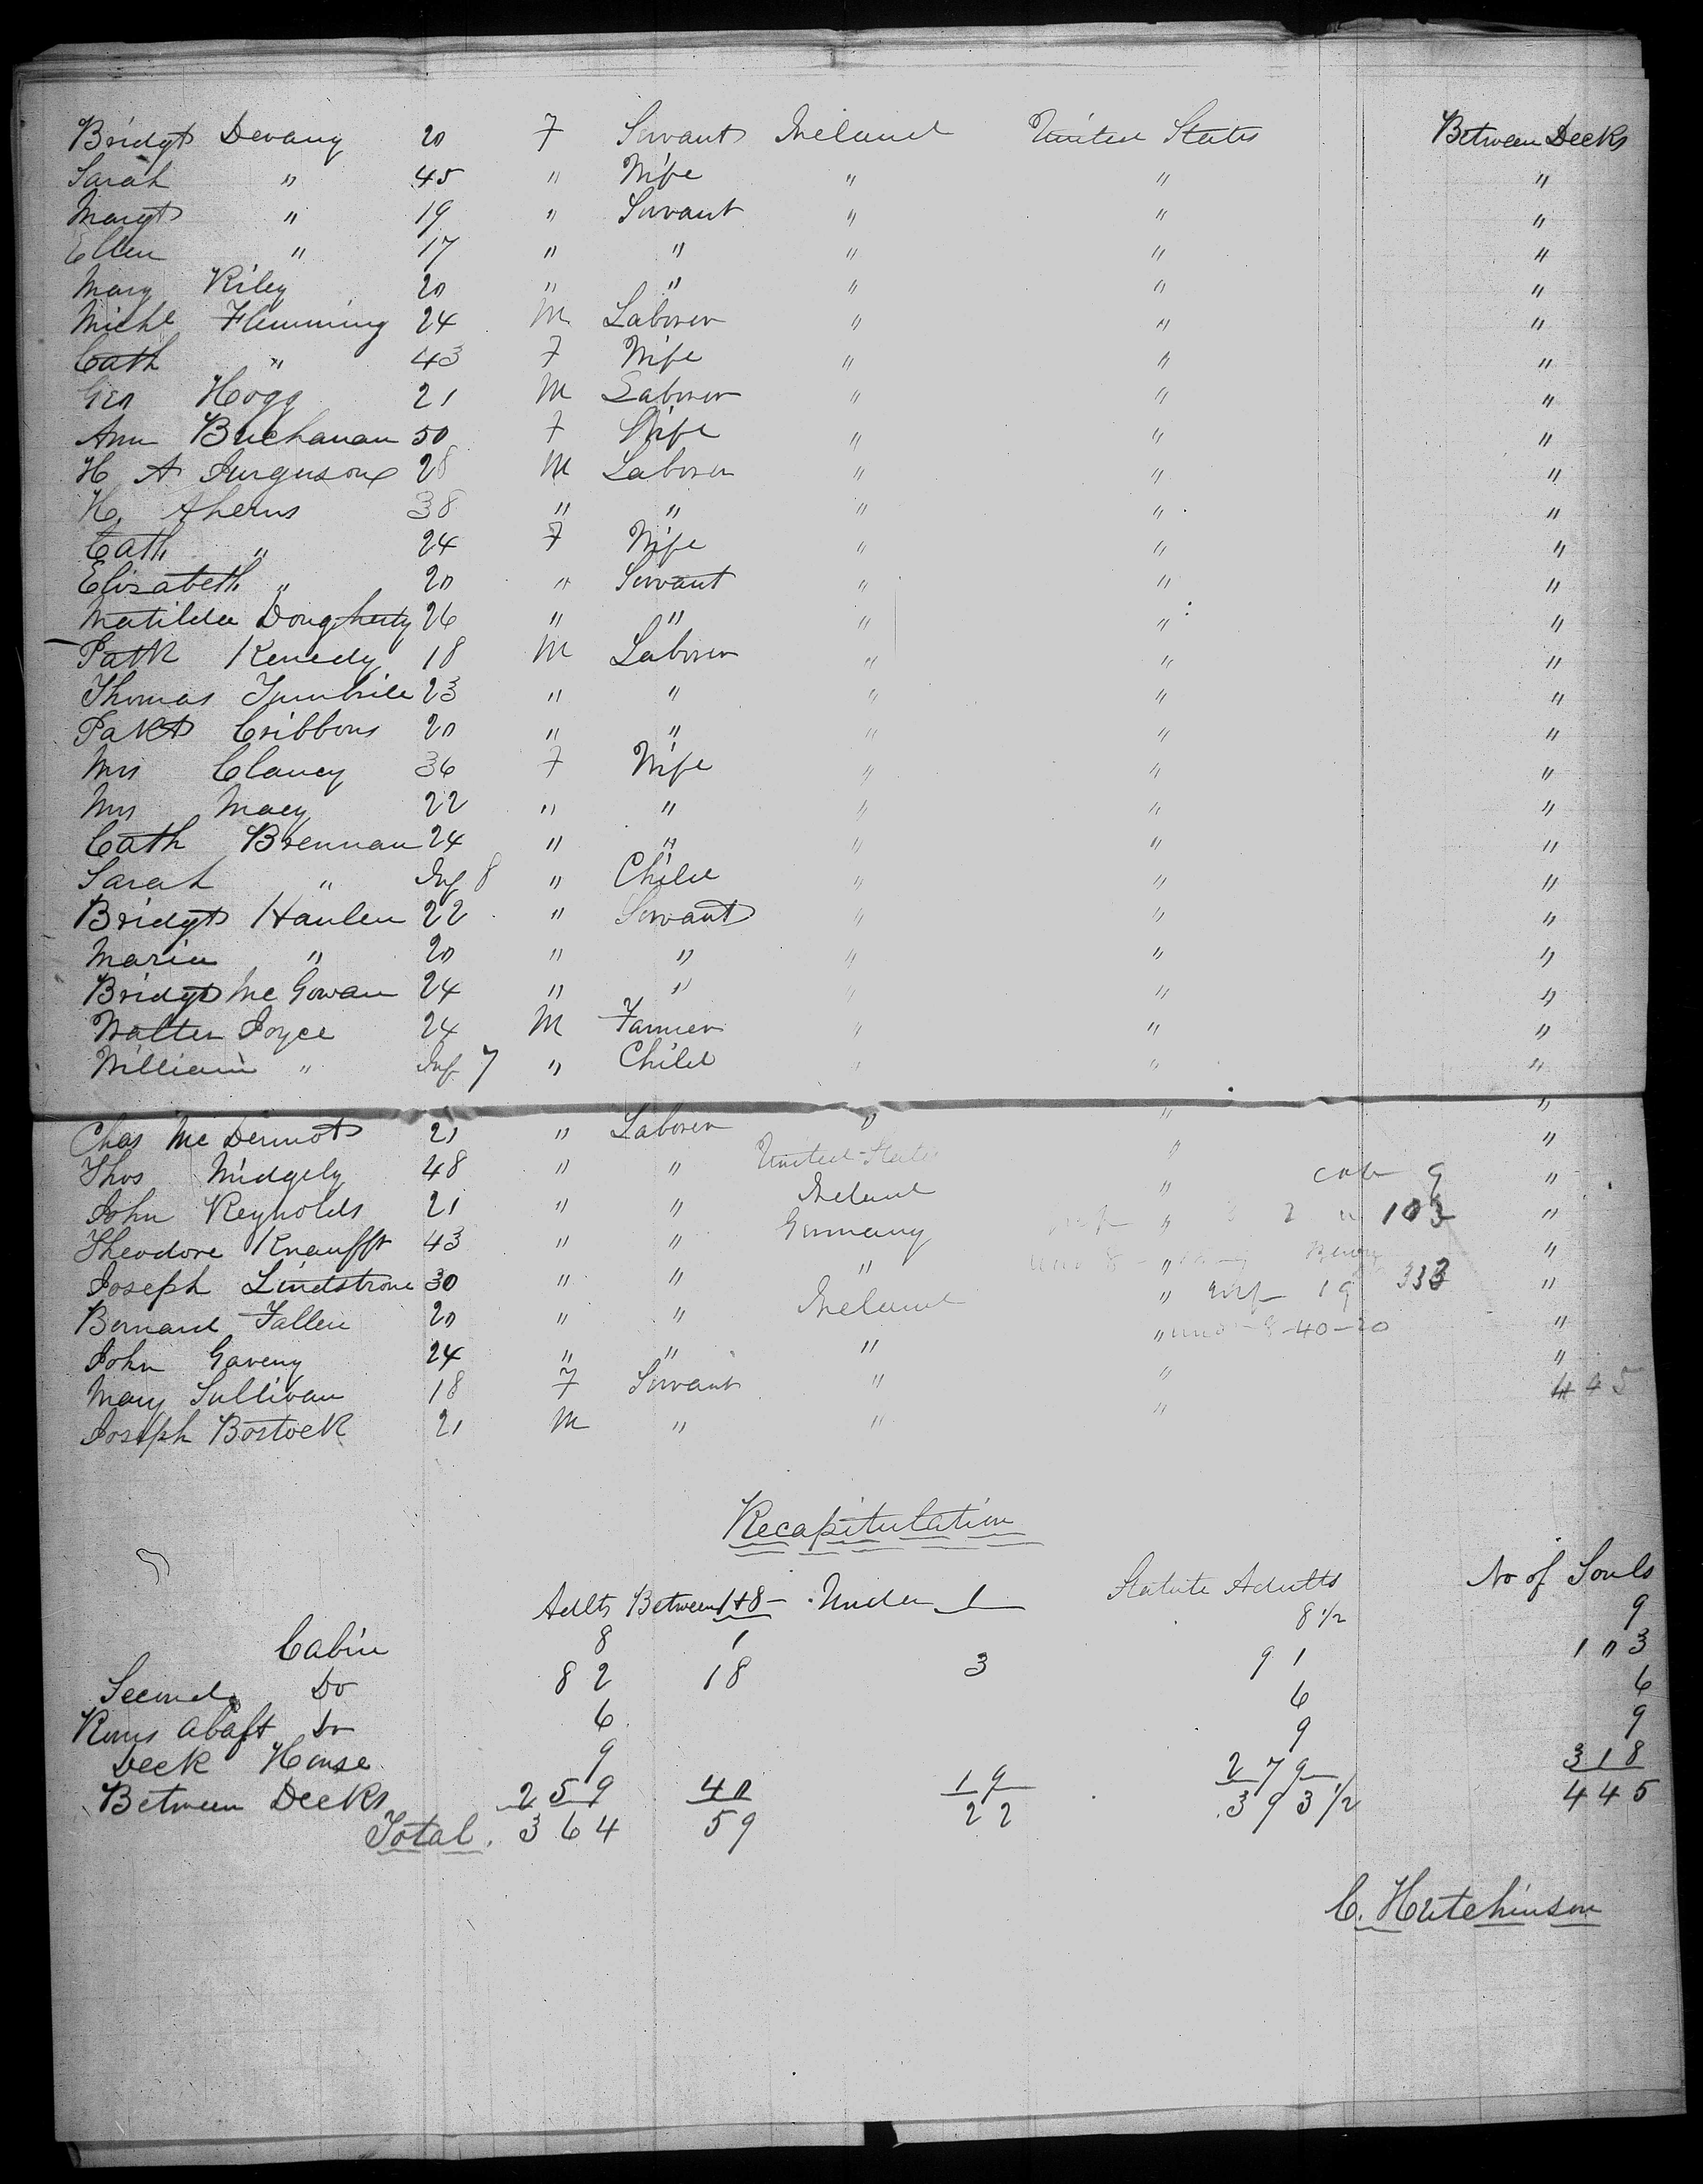 Bridgt Devany 20 F Servant Ireland United States Between Decks
Sarah " 45 " Wife " " "
Margt " 19 " Servant " " "
Ellen " 17 " " " " "
Mary Riley 20 " " " " "
Michl Flemming 24 M Laborer " " "
Cath " 43 F Wife " " "
Geo Hogg 21 M Laborer " " "
Ann Buchanan 50 F Wife " " "
H A Furguson 28 M Laborer " " "
H. Aherns 38 " " " " "
Cath " 24 F Wife " " "
Elizabeth " 20 " Servant " " "
Matilda Dougherty 26 " " " " "
Patk Kenedy 18 M Laborer " " "
Thomas 23 " " " " "
Patk Cribbons 20 " " " " "
Mrs Clancy 36 F Wife " " "
Mrs Macy 22 " " " " "
Cath Brennan 24 " " " " "
Sarah " Inf 8 " Child " " "
Bridgt Hanlen 22 " Servant " " "
Maria " 20 " " " " "
Bridgt McGowan 24 " " " " "
Walter Joyce 24 M Farmer " " "
William " Inf 7 " Child " " "
Chas McDermot 21 " Laborer " " "
Thos Midgely 48 " " United States " "
John Reynolds 21 " " Ireland " cab 9 "
Theodore Knaufft 43 " " Germany " 103 "
Joseph Lindstrone 30 " " " " "
Bernard Fallen 20 " " Ireland " inf 19 333 "
John Gaveny 24 " " " " und 8-40-20 "
Mary Sullivan 18 F Servant " " "
Joseph Bostock 21 M " " " 445
Recapitulation
Adlts Between 1+8 - Under 1 Statute Adults No of Souls
Cabin 8 1 8 1/2 9
Second Do 82 18 3 91 103
Rms abaft Do 6 6 6
Deck House 9 9 9
Between Decks 259 40 19 279 318
Total. 364 59 22 393 1/2 445
C. Hutchinson